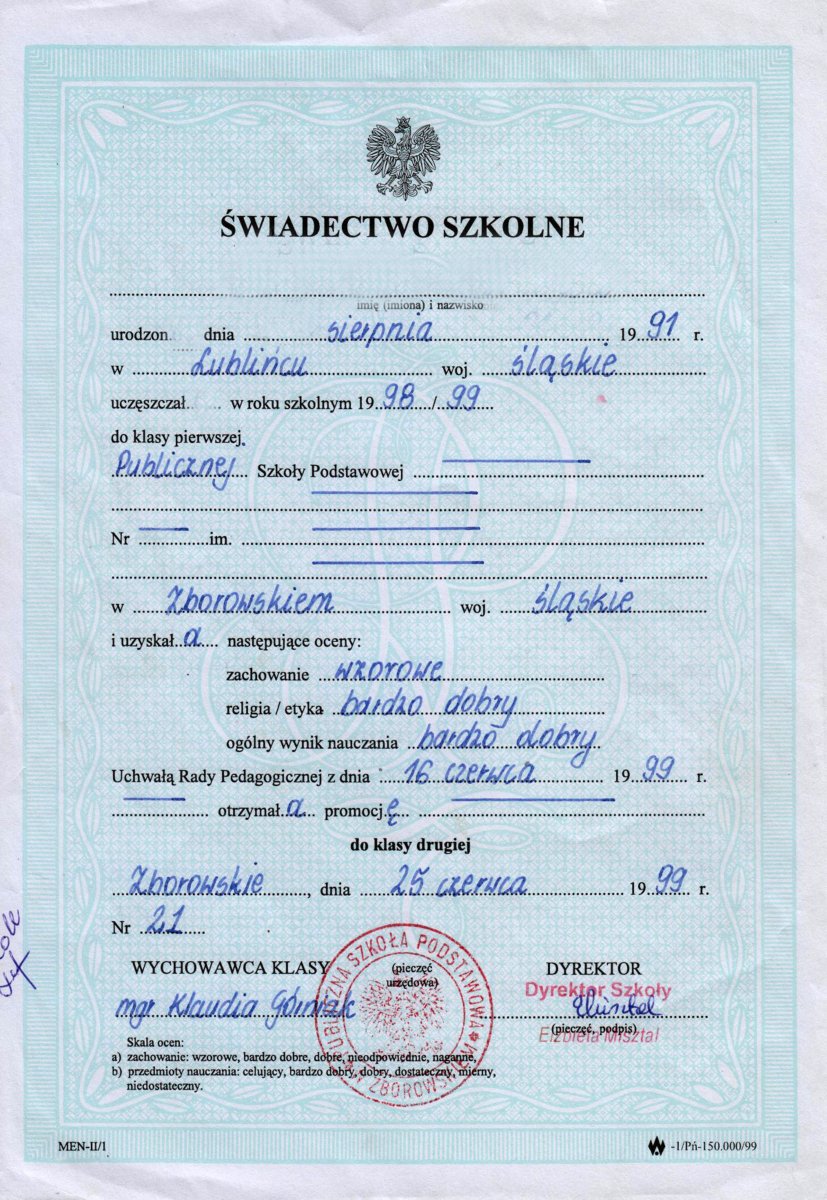 ŚWIADECTWO SZKOLNE
imię (imiona) i nazwisko
urodzon dnia sierpnia 1991 r.
w Lublińcu woj. śląskie
uczęszczał w roku szkolnym 1998/99
do klasy pierwszej
Publicznej Szkoły Podstawowej
Nr im.
w Zborowskiem woj. śląskie
i uzyskała następujące oceny:
zachowanie wzorowe
religia / etyka bardzo dobry
ogólny wynik nauczania bardzo dobry
Uchwałą Rady Pedagogicznej z dnia 16 czerwca 1999 r.
otrzymała promocję
do klasy drugiej
Zborowskie, dnia 25 czerwca 1999 r.
Nr 21
WYCHOWAWCA KLASY (pieczęć urzędowa) DYREKTOR
PUBLICZNA SZKOŁA PODSTAWOWA W ZBOROWSKIEM
Dyrektor Szkoły
mgr Klaudia Górniak
(pieczęć, podpis)
Elżbieta Misztal
Skala ocen:
a) zachowanie: wzorowe, bardzo dobre, dobre, nieodpowiednie, naganne,
b) przedmioty nauczania: celujący, bardzo dobry, dobry, dostateczny, mierny,
niedostateczny.
MEN-II/1 -1/Pń-150.000/99